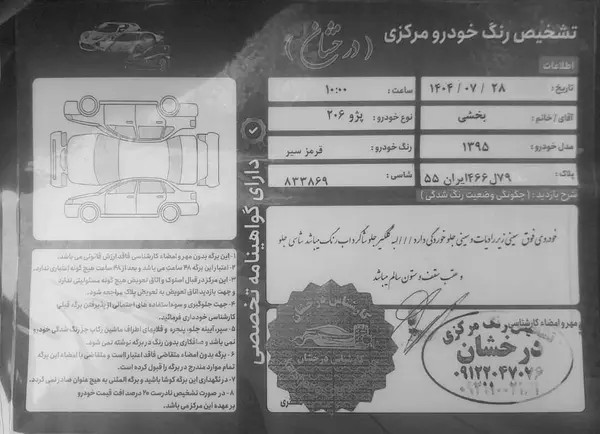 تشخیص رنگ خودرو مرکزی
( درخشان )
اطلاعات
تاریخ : ۲۸ / ۰۷ / ۱۴۰۴
ساعت : ۱۰:۰۰
آقای / خانم : بخشی
نوع خودرو : پژو ۲۰۶
مدل خودرو : ۱۳۹۵
رنگ خودرو : قرمز سیر
پلاک : ۷۹ل۴۶۶ایران ۵۵
شاسی : ۸۳۳۸۶۹
شرح بازدید : ( چگونگی وضعیت رنگ شدگی )
خودروی فوق سینی زیر رادیات و سینی جلو خوردگی دارد /// لبه گلگیر جلو شاگرد لب رنگ میباشد شاسی جلو
و عقب سقف و ستون سالم میباشد
دارای گواهینامه تخصصی
۱- این برگه بدون مهر و امضاء کارشناسی فاقد ارزش قانونی می باشد.
۲- اعتبار این برگه ۴۸ ساعت می باشد و بعد از ۴۸ ساعت هیچ گونه اعتباری ندارد.
۳- این مرکز در قبال استوک و اتاق تعویض هیچ گونه مسئولیتی ندارد
و جهت بازدید اتاق تعویض به تعویض پلاک مراجعه شود.
۴- جهت جلوگیری و سوء استفاده های احتمالی از پذیرفتن برگه قبلی
کارشناسی خودداری فرمائید.
۵- سپر، آیینه جلو، پنجره و قلابهای اطراف ماشین رکاب جز رنگ شدگی خودرو
نمی باشد و صافکاری بدون رنگ در برگه نوشته نمی شود.
۶- برگه بدون امضاء متقاضی فاقد اعتبار است و متقاضی با امضاء این برگه
تمام موارد مندرج در برگه را قبول کرده است.
۷- در نگهداری این برگه کوشا باشید و برگه المثنی به هیچ عنوان صادر نمی گردد.
۸- در صورت تشخیص نادرست ۲۰ درصد افت قیمت خودرو
بر عهده این مرکز می باشد.
مهر و امضاء کارشناسی
کارشناسی درخشان
رنگ مرکزی
درخشان
۰۹۱۲۲۰۴۷۰۲۶